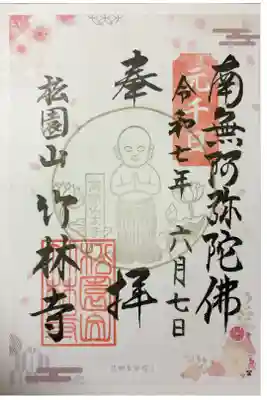 南無阿弥陀佛
令和七年 六月七日
奉拝
松園山 竹林寺